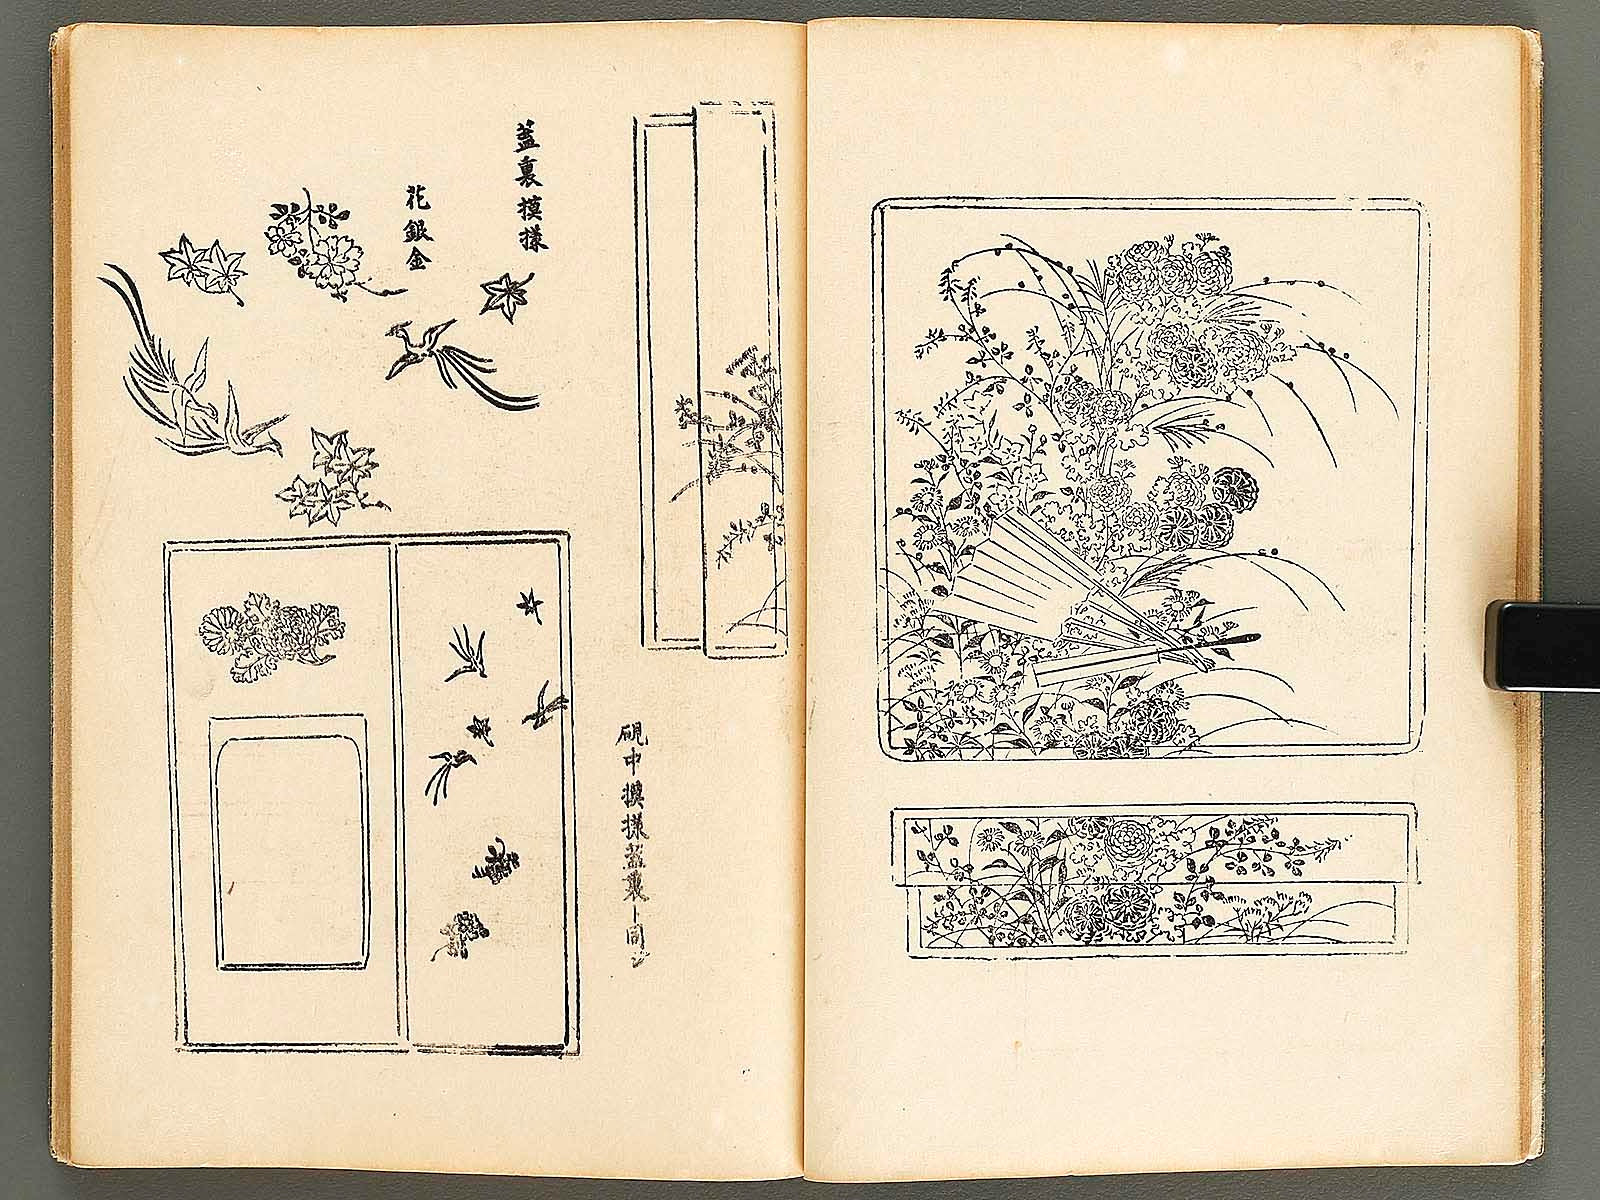 蓋裏摸樣
花銀金
硯中摸樣蓋裏ト同シ